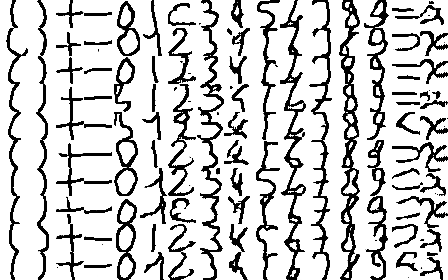 ( ) + - 0 1 2 3 4 5 6 7 8 9 =
( ) + - 0 1 2 3 4 5 6 7 8 9
( ) + - 0 1 2 3 4 5 6 7 8 9
( ) + - 1 2 3 4 5 6 7 8 9 =
( ) + - 1 2 3 4 5 6 7 8 9
( ) + - 0 1 2 3 4 5 6 7 8 9
( ) + - 0 1 2 3 4 5 6 7 8 9
( ) + - 0 1 2 3 4 5 6 7 8 9
( ) + - 0 1 2 3 4 5 6 7 8 9
( ) + - 0 1 2 3 4 5 6 7 8 9